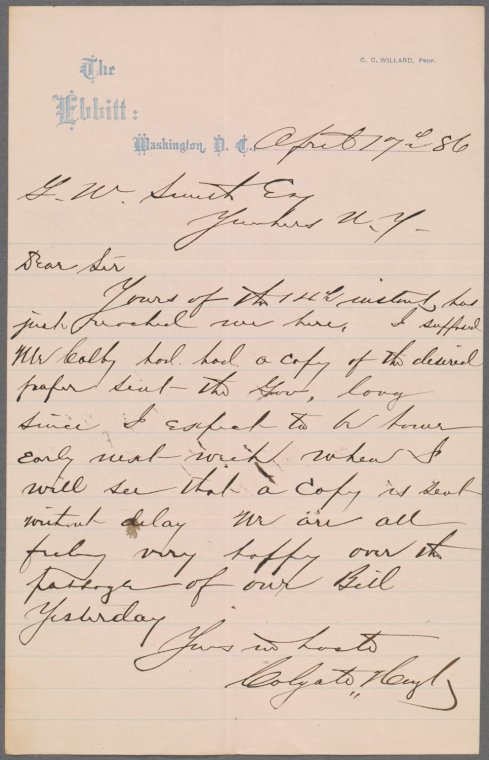 The
Ebbitt:
C. C. WILLARD, Prop.
Washington, D. C., April 17th 86
G. W. Smith Esq
Yonkers N. Y.
Dear Sir
Yours of the 14th instant has
just reached me here, I supposed
Mr Colby had had a copy of the desired
paper sent the Gov, long
since I expect to be home
early next week when I
will see that a copy is sent
without delay We are all
feeling very happy over the
passage of our Bill
Yesterday
Yours in haste
Colgate Hoyt